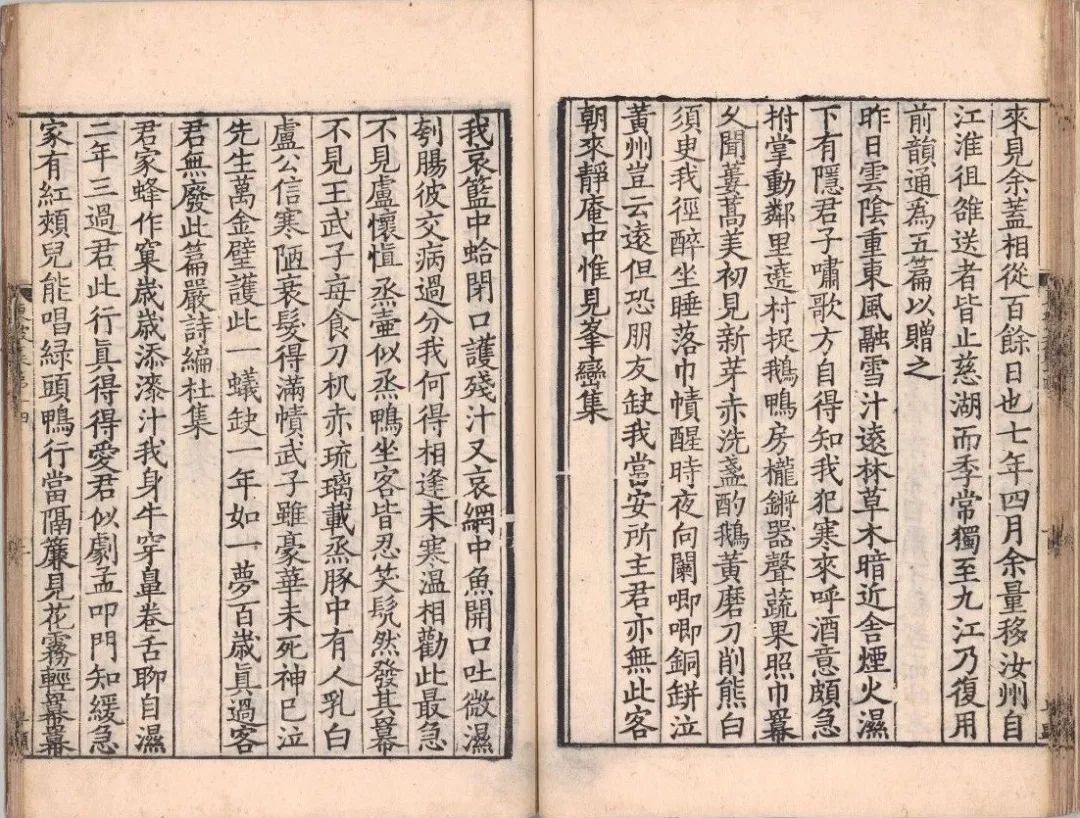 來見余蓋相從百餘日也七年四月余量移汝州自
江淮徂雒送者皆止慈湖而季常獨至九江乃復用
前韻通爲五篇以贈之
昨日雲陰重東風融雪汁遠林草木暗近舎煙火濕
下有隱君子嘯歌方自得知我犯寒來呼酒意頗急
拊掌動鄰里遶村捉鵝鴨房櫳鏘器聲蔬果照巾冪
乆聞蔞蒿美初見新芽赤洗盞酌鵝黃磨刀削熊白
須臾我徑醉坐睡落巾幘醒時夜向闌唧唧銅缾泣
黃州豈云遠但恐朋友缺我當安所主君亦無此客
朝來靜庵中惟見峯巒集
我哀籃中蛤閉口護殘汁又哀網中魚開口吐微濕
刳腸彼交病過分我何得相逢未寒温相勸此最急
不見盧懷愼烝壷似烝鴨坐客皆忍笑髠然發其冪
不見王武子每食刀机赤琉璃載烝豚中有人乳白
盧公信寒陋衰髮得滿幘武子雖豪華未死神已泣
先生萬金璧護此一蟻缺一年如一夢百歲眞過客
君無廢此篇嚴詩編杜集
君家蜂作窠歲歲添漆汁我身牛穿鼻卷舌聊自濕
二年三過君此行眞得得愛君似劇孟叩門知緩急
家有紅頰兒能唱緑頭鴨行當隔簾見花霧輕冪冪